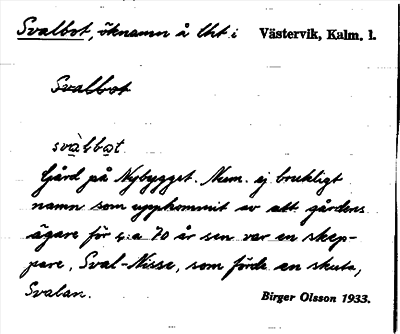 Svalbot, öknamn å lht i Västervik, Kalm. l.
Svalbot
svàlbat
Gård på Nybygget. Num. ej brukligt
namn som uppkommit av att gårdens
ägare för c:a 70 år sen var en skep-
pare, Sval-Nisse, som förde en skuta,
Svalan.
Birger Olsson 1933.